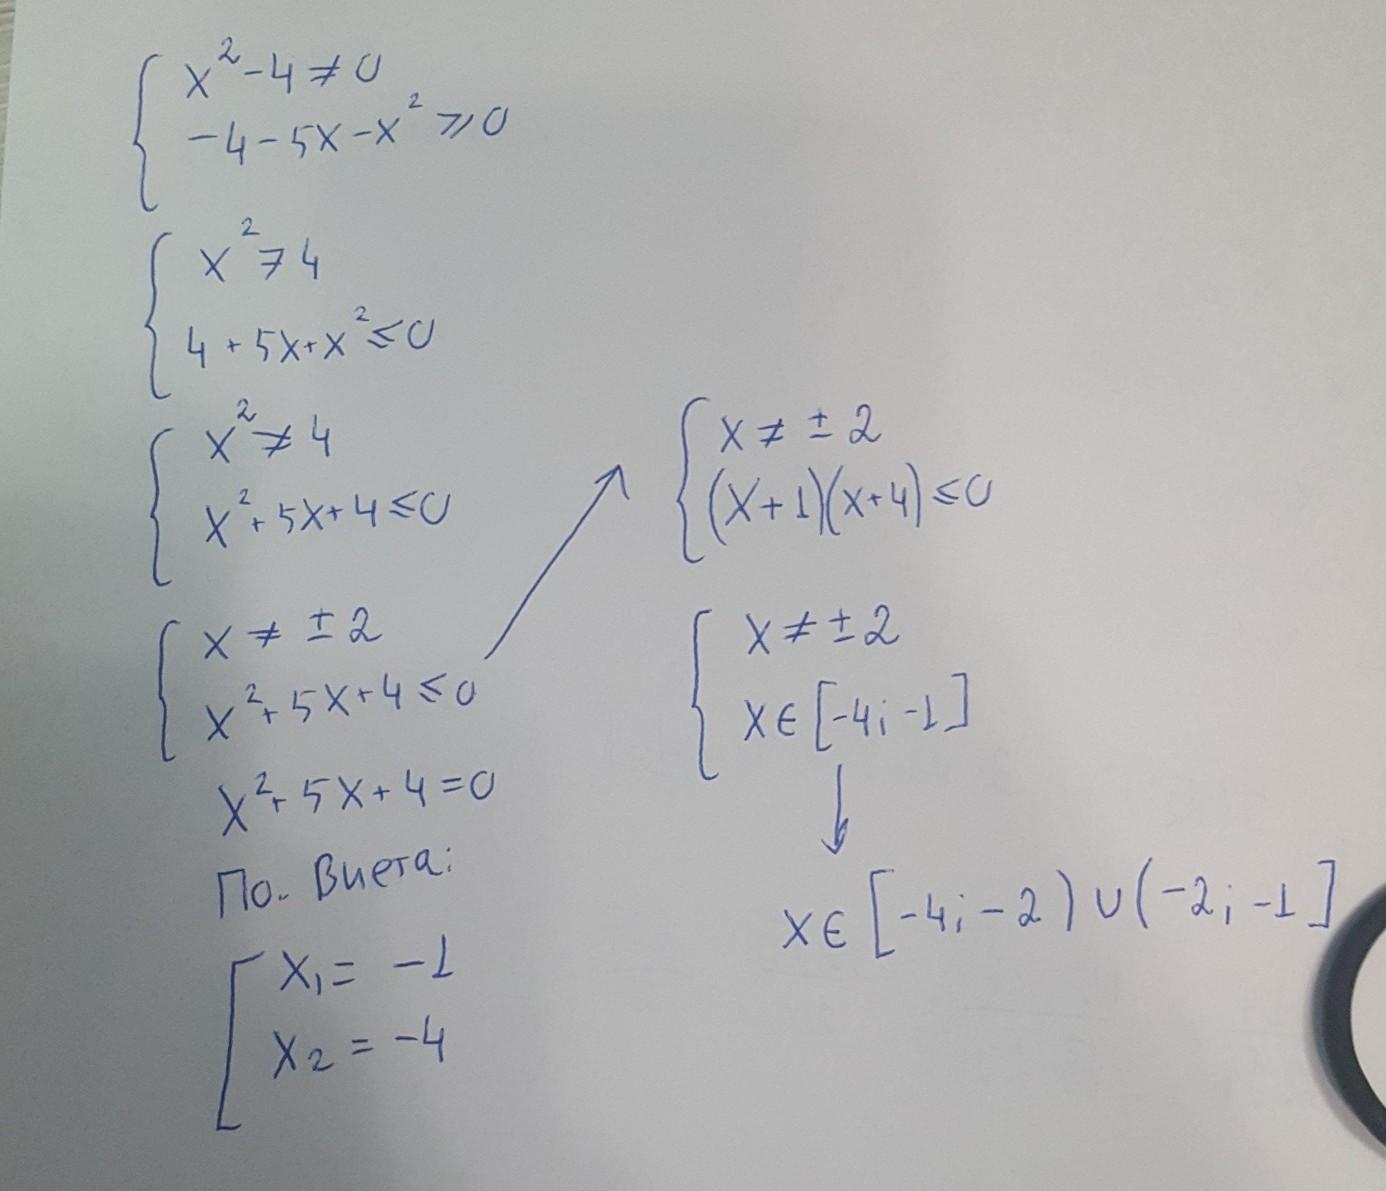 x² - 4 ≠ 0
-4 - 5x - x² ⩾ 0
x² ≠ 4
4 + 5x + x² ⩽ 0
x² ≠ 4
x² + 5x + 4 ⩽ 0
x ≠ ± 2
x² + 5x + 4 ⩽ 0
x² + 5x + 4 = 0
По. Виета:
x₁ = -1
x₂ = -4
x ≠ ± 2
(x + 1)(x + 4) ⩽ 0
x ≠ ± 2
x ∈ [-4; -1]
x ∈ [-4; -2) ∪ (-2; -1]